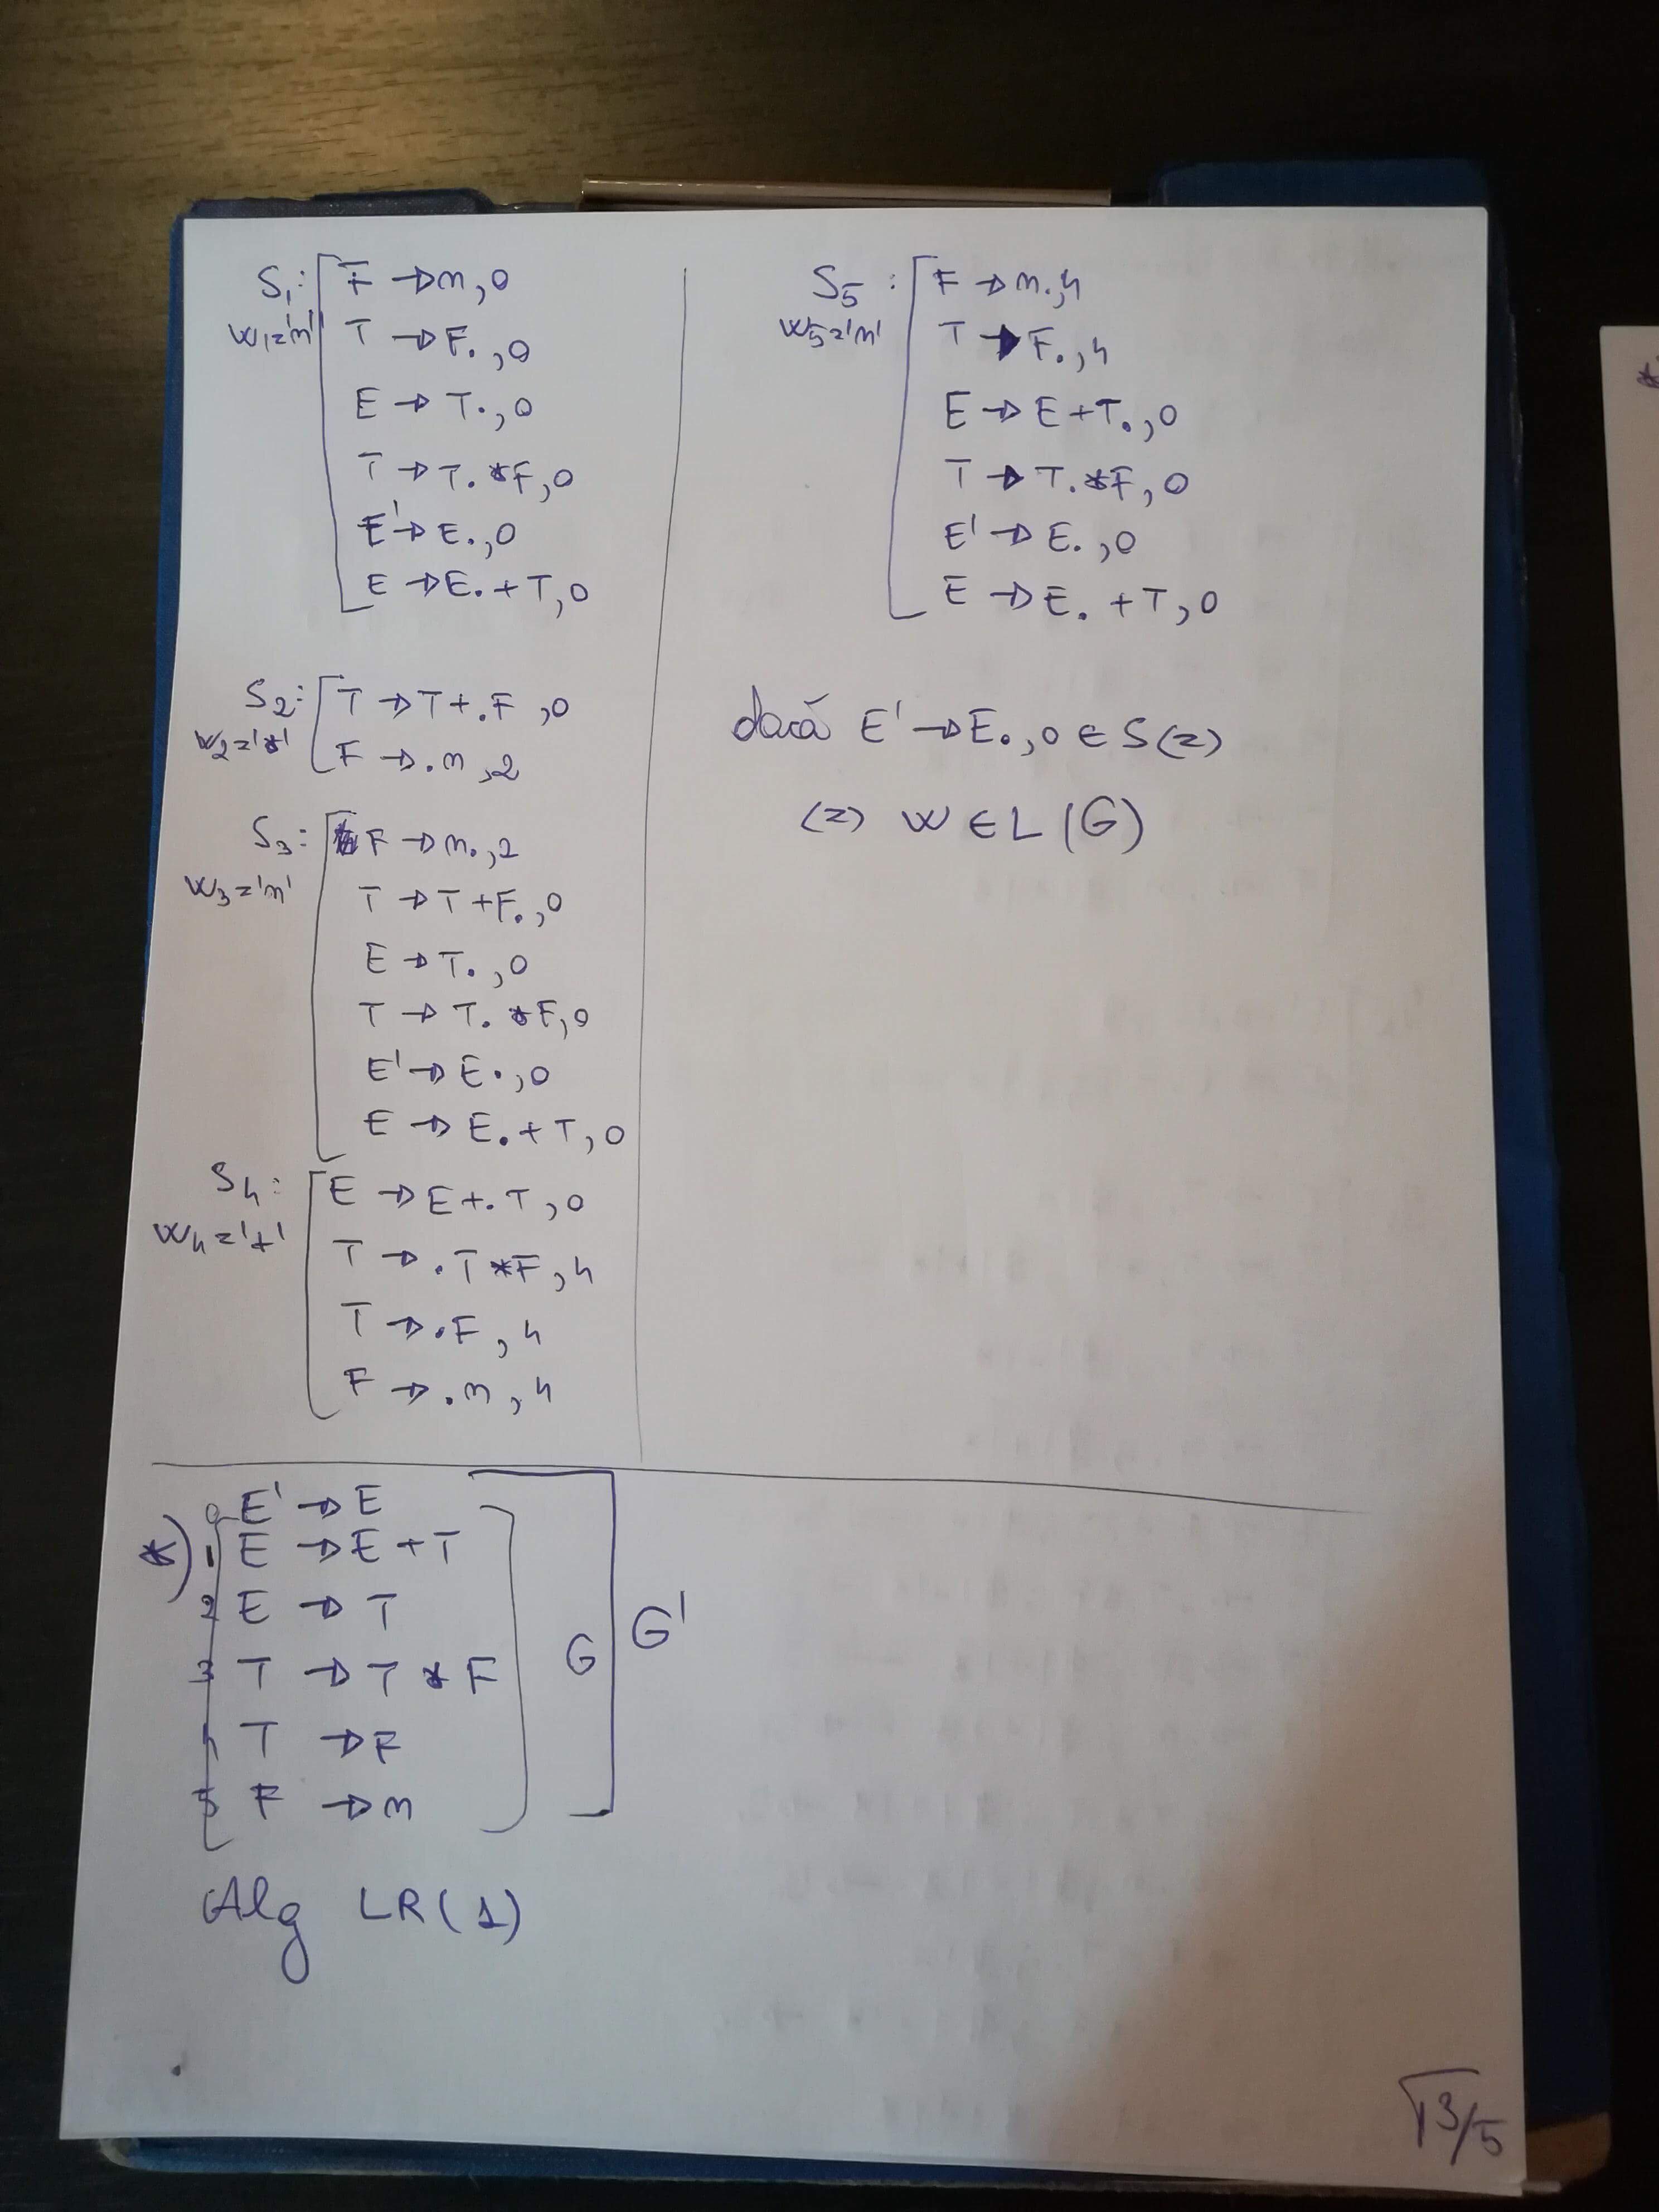 S1: F → n, 0
w1='n' T → F., 0
E → T., 0
T → T.*F, 0
E' → E., 0
E → E.+T, 0
S2: T → T+.F, 0
w2='*' F → .n, 2
S3: F → n., 2
w3='n' T → T+F., 0
E → T., 0
T → T.*F, 0
E' → E., 0
E → E.+T, 0
S4: E → E+.T, 0
w4='+' T → .T*F, 4
T → .F, 4
F → .n, 4
S5: F → n., 4
w5='n' T → F., 4
E → E+T., 0
T → T.*F, 0
E' → E., 0
E → E.+T, 0
dacă E' → E., 0 ∈ S(z)
(z) w ∈ L(G)
*) 0 E' → E
1 E → E+T
2 E → T
3 T → T*F
4 T → F
5 F → n
G
G'
Alg LR(1)
13/5